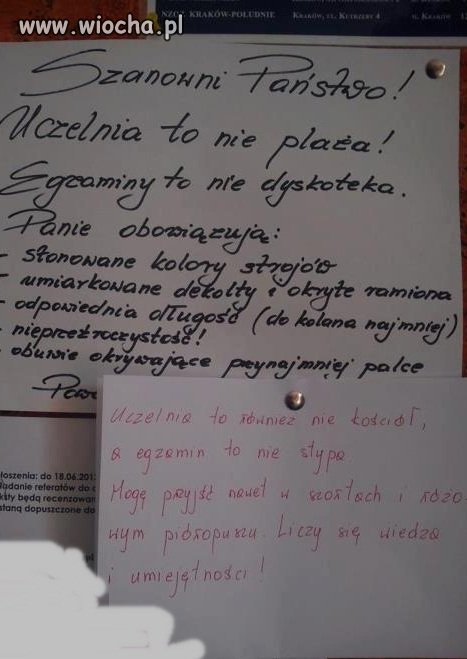 www.wiocha.pl
NZOZ KRAKÓW-POŁUDNIE
KRAKÓW, UL. KUTRZEBY 4
UL. KRAKÓW
Szanowni Państwo!
Uczelnia to nie plaża!
Egzaminy to nie dyskoteka.
Panie obowiązują:
- stonowane kolory strojów
- umiarkowane dekolty i okryte ramiona
- odpowiednia długość (do kolana najmniej)
- nieprzeźroczystość!
- obuwie okrywające przynajmniej palce
Uczelnia to również nie kościół,
a egzamin to nie stypa.
Mogę przyjść nawet w szortach i różo-
wym pióropuszu. Liczy się wiedza
i umiejętności!
łoszenia: do 18.06.201
ładanie referatów do
ksty będą recenzowan
staną dopuszczone do